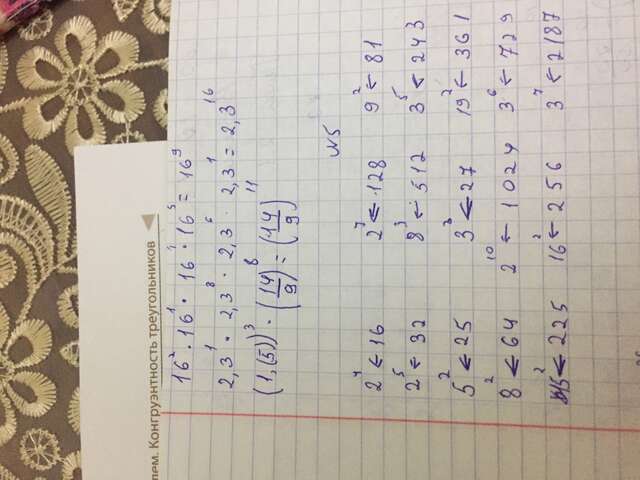 лем. Конгруэнтность треугольников
16² · 16¹ · 16¹ · 16⁵ = 16⁹
2,3¹ · 2,3⁸ · 2,3⁶ · 2,3¹ = 2,3¹⁶
(1,(5))³ · (14/9)⁸ = (14/9)¹¹
№5
2⁴ ← 16 2⁷ ← 128 9² ← 81
2⁵ ← 32 8³ ← 512 3⁵ ← 243
5² ← 25 3³ ← 27 19² ← 361
8² ← 64 2¹⁰ ← 1024 3⁶ ← 729
15² ← 225 16² ← 256 3⁷ ← 2187